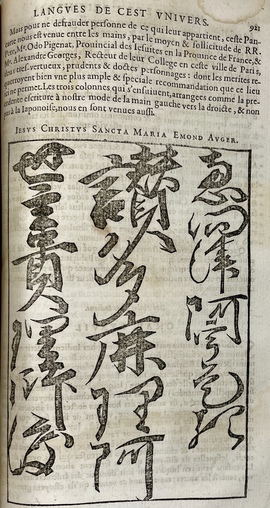 LANGVES DE CEST VNIVERS. 921
Mais pour ne defrauder personne de ce qui leur appartient, ceste Pan-
carte nous est venue entre les mains, par le moyen & sollicitude de RR.
PP. Mr. Odo Pigenat, Prouincial des Iesuites en la Prouince de France, &
Mr. Alexandre Georges, Recteur de leur College en ceste ville de Paris,
tous vertueux, prudents & doctes personnages: dont les merites re-
querroyent bien vne plus ample & speciale recommandation que le lieu
ne permet. Les trois colonnes qui s'ensuiuent, arrangees comme la pre-
cedente escriture à nostre mode de la main gauche vers la droite, & non
pas à la Iaponoise, nous en sont venues aussi.
IESVS CHRISTVS SANCTA MARIA EMOND AVGER.
世主貴理
讃多麻理阿
恵 阿